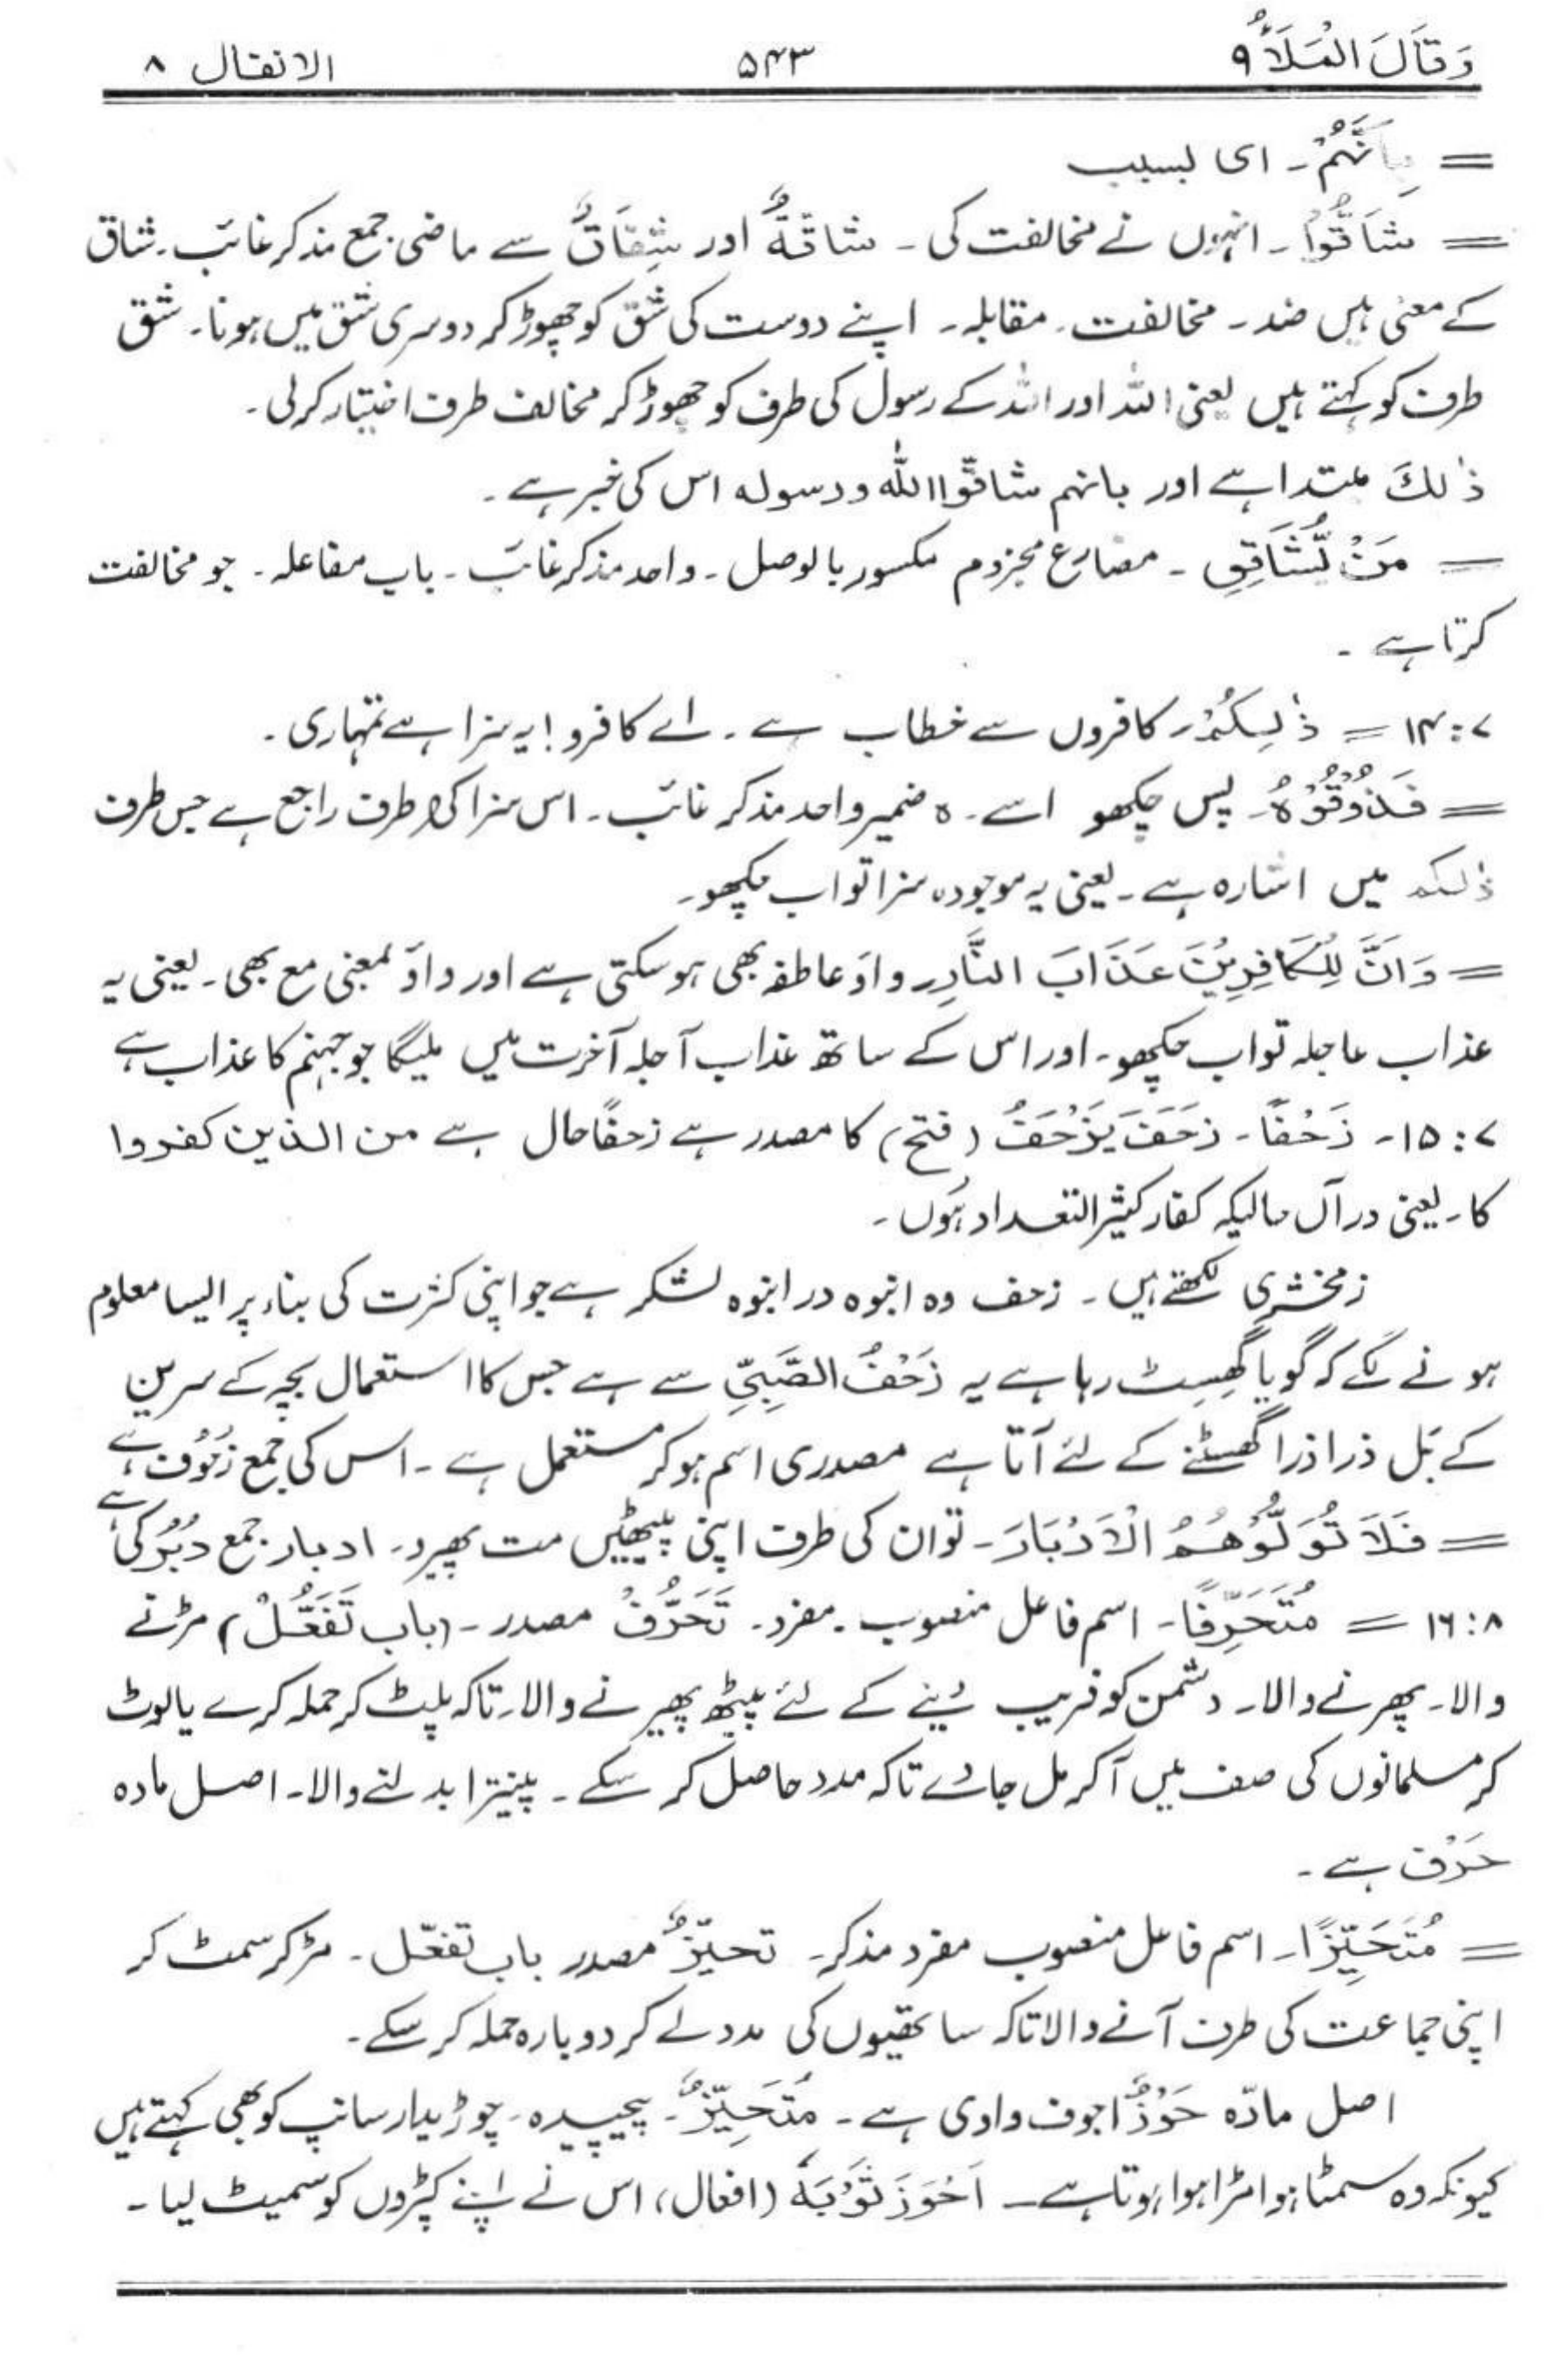 وَقَالَ الْمَلَأُ ۹ ۵۴۳ الانفال ۸
= بِاَنَّہُمْ۔ ای بسبب
= شَاقُّوْا۔ انہوں نے مخالفت کی۔ شاقۃٌ اور شِقَاقٌ سے ماضی جمع مذکر غائب۔ شقاق
کے معنی ہیں ضد۔ مخالفت۔ مقابلہ۔ اپنے دوست کی شقّ کو چھوڑ کر دوسری شق میں ہونا۔ شق
طرف کو کہتے ہیں یعنی اللہ اور اللہ کے رسول کی طرف کو چھوڑ کر مخالف طرف اختیار کر لی۔
ذٰلِکَ مبتدا ہے اور بانہم شاقّوا اللہ ورسولہ اس کی خبر ہے۔
= مَنْ یُّشَاقِقِ۔ مضارع مجزوم مکسور بالوصل۔ واحد مذکر غائب۔ باب مفاعلہ۔ جو مخالفت
کرتا ہے۔
۷:۱۴ = ذٰلِکُمْ۔ کافروں سے خطاب ہے۔ اے کافرو! یہ سزا ہے تمہاری۔
= فَذُوْقُوْہُ۔ پس چکھو اسے۔ ہ ضمیر واحد مذکر غائب۔ اس سزا کی طرف راجع ہے جس طرف
ذٰلکم میں اشارہ ہے۔ یعنی یہ موجودہ سزا تو اب چکھو۔
= وَاَنَّ لِلْکَافِرِیْنَ عَذَابَ النَّارِ۔ واؤ عاطفہ بھی ہو سکتی ہے اور واؤ بمعنی مع بھی۔ یعنی یہ
عذاب عاجلہ تو اب چکھو۔ اور اس کے ساتھ عذاب آجلہ آخرت میں ملیگا جو جہنم کا عذاب ہے
۷:۱۵۔ زَحْفًا۔ زَحَفَ یَزْحَفُ (فتح) کا مصدر ہے زحفًا حال ہے من الذین کفروا
کا۔ یعنی در آں حالیکہ کفار کثیر التعداد ہُوں۔
زمخشری لکھتے ہیں۔ زحف وہ انبوہ در انبوہ لشکر ہے جو اپنی کثرت کی بناء پر ایسا معلوم
ہونے لگے کہ گویا گھِسٹ رہا ہے یہ زَحْفُ الصَّبِیِّ سے ہے جس کا استعمال بچہ کے سرین
کے بَل ذرا ذرا گھسٹنے کے لئے آتا ہے مصدری اسم ہو کر مستعمل ہے۔ اس کی جمع زُحُوْف ہے
= فَلَا تُوَلُّوْھُمُ الْاَدْبَارَ۔ تو ان کی طرف اپنی پیٹھیں مت پھیرو۔ ادبار جمع دُبُرٌ کی ہے
۸:۱۶ = مُتَحَرِّفًا۔ اسم فاعل منصوب۔ مفرد۔ تَحَرُّفٌ مصدر۔ (باب تَفَعُّلْ) مڑنے
والا۔ پھرنے والا۔ دشمن کو فریب دینے کے لئے پیٹھ پھیرنے والا۔ تاکہ پلٹ کر حملہ کرے یا لوٹ
کر مسلمانوں کی صف میں آکر مل جائے تاکہ مدد حاصل کر سکے۔ پینترا بدلنے والا۔ اصل مادہ
حَرْف ہے۔
= مُتَحَیِّزًا۔ اسم فاعل منصوب مفرد مذکر۔ تحیّزٌ مصدر باب تفعّل۔ مڑ کر سمٹ کر
اپنی جماعت کی طرف آنے والا تاکہ ساتھیوں کی مدد لے کر دوبارہ حملہ کر سکے۔
اصل مادّہ حَوْزٌ اجوف وادی ہے۔ مُتَحَیِّزٌ۔ پیچیدہ۔ چوڑیدار سانپ کو بھی کہتے ہیں
کیونکہ وہ سمٹا ہوا مڑا ہوا ہوتا ہے۔ اَحْوَزَ ثَوْبَہٗ (افعال) اس نے اپنے کپڑوں کو سمیٹ لیا۔